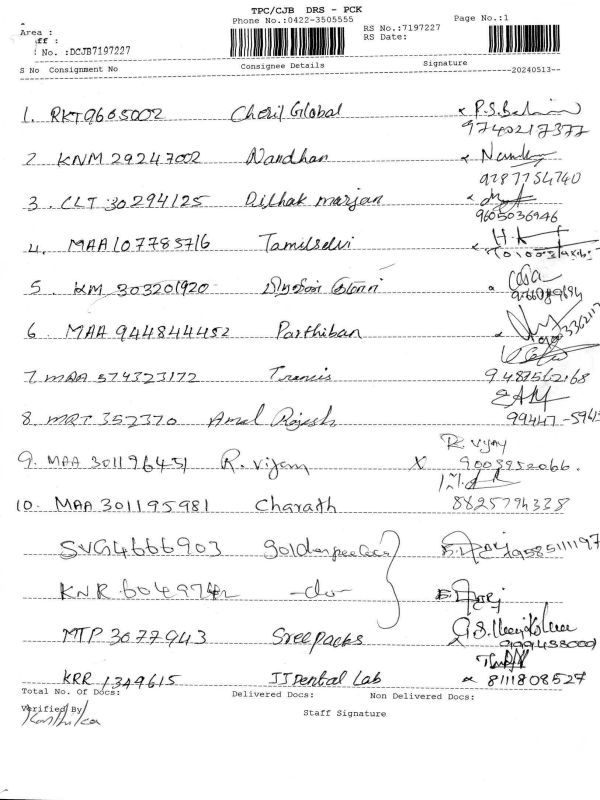 TPC/CJB DRS - PCK
Phone No.:0422-3505555
Page No.:1
Area :
ff :
No. :DCJB7197227
RS No.:7197227
RS Date:
S No Consignment No Consignee Details Signature
20240513
1. RKT9605002 Cheril Global 9740217377
2 KNM 29247002 Nandhan 9787754740
3. CLT 30294125 Dilhak marjan 9605036946
4. MAA 107785716 Tamilselvi
5. KM 303201920
6. MAA 944844452 Parthiban
7. MAA 574323172 9487562168
8. MRT 352370 Amal Rajesh 99447-5945
9. MAA 301196451 R. vijay R. vijay 9003952066.
10. MAA 301195981 Charath 8825794338
SVG4666903 9585111197
KNR -do-
MTP 3077943 Sreepacks
KRR 1349615 JJ Dental Lab 8111808527
Total No. Of Docs: Delivered Docs: Non Delivered Docs:
Verified By
Staff Signature